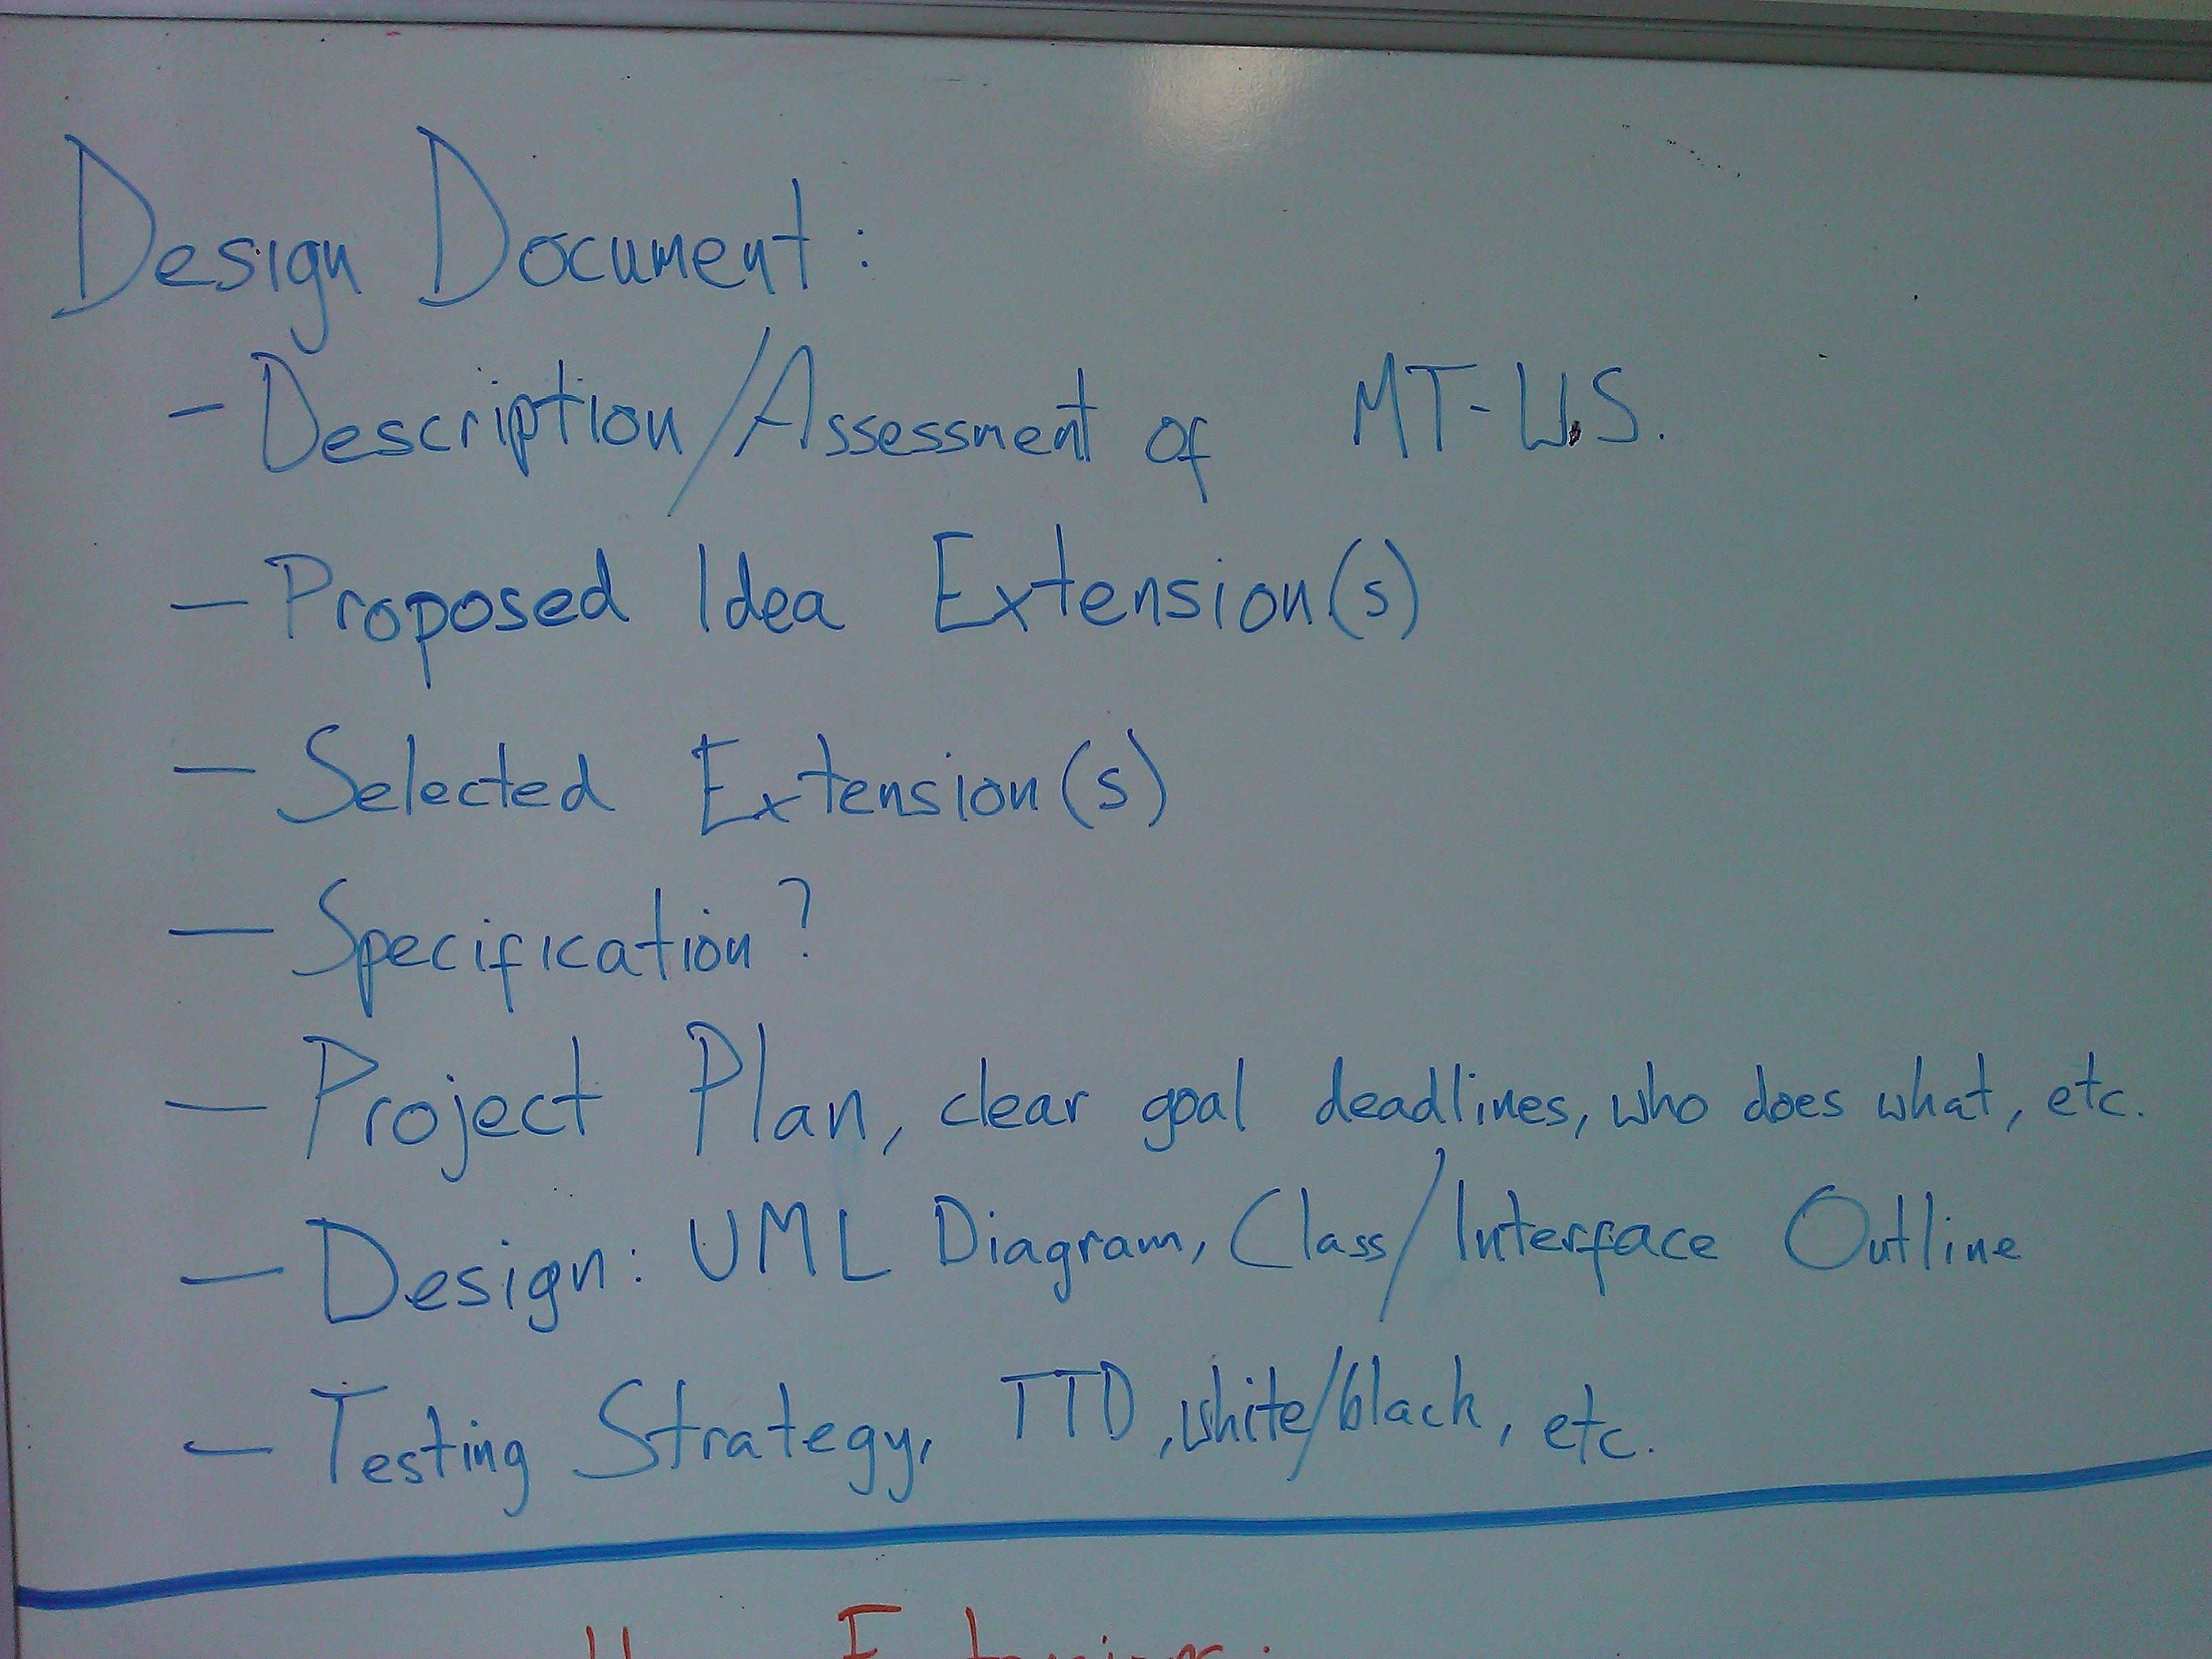 Design Document:
- Description/Assessment of MT-W.S.
- Proposed Idea Extension(s)
- Selected Extension(s)
- Specification?
- Project Plan, clear goal deadlines, who does what, etc.
- Design: UML Diagram, Class/Interface Outline
- Testing Strategy, TTD, white/black, etc.